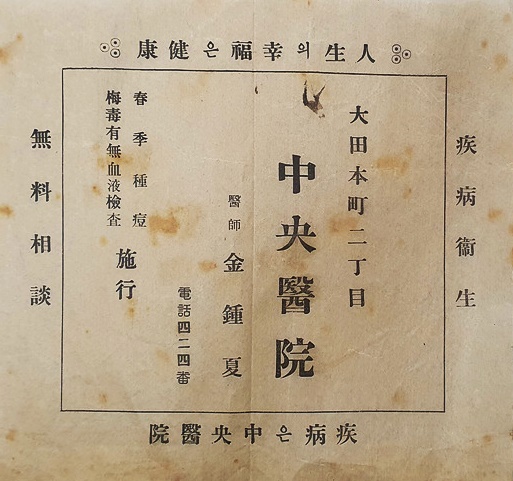 人生의幸福은健康
疾病衞生
大田本町二丁目
中央醫院
醫師 金鍾夏
電話四二四番
春季種痘
梅毒有無血液檢査
施行
無料相談
疾病은中央醫院